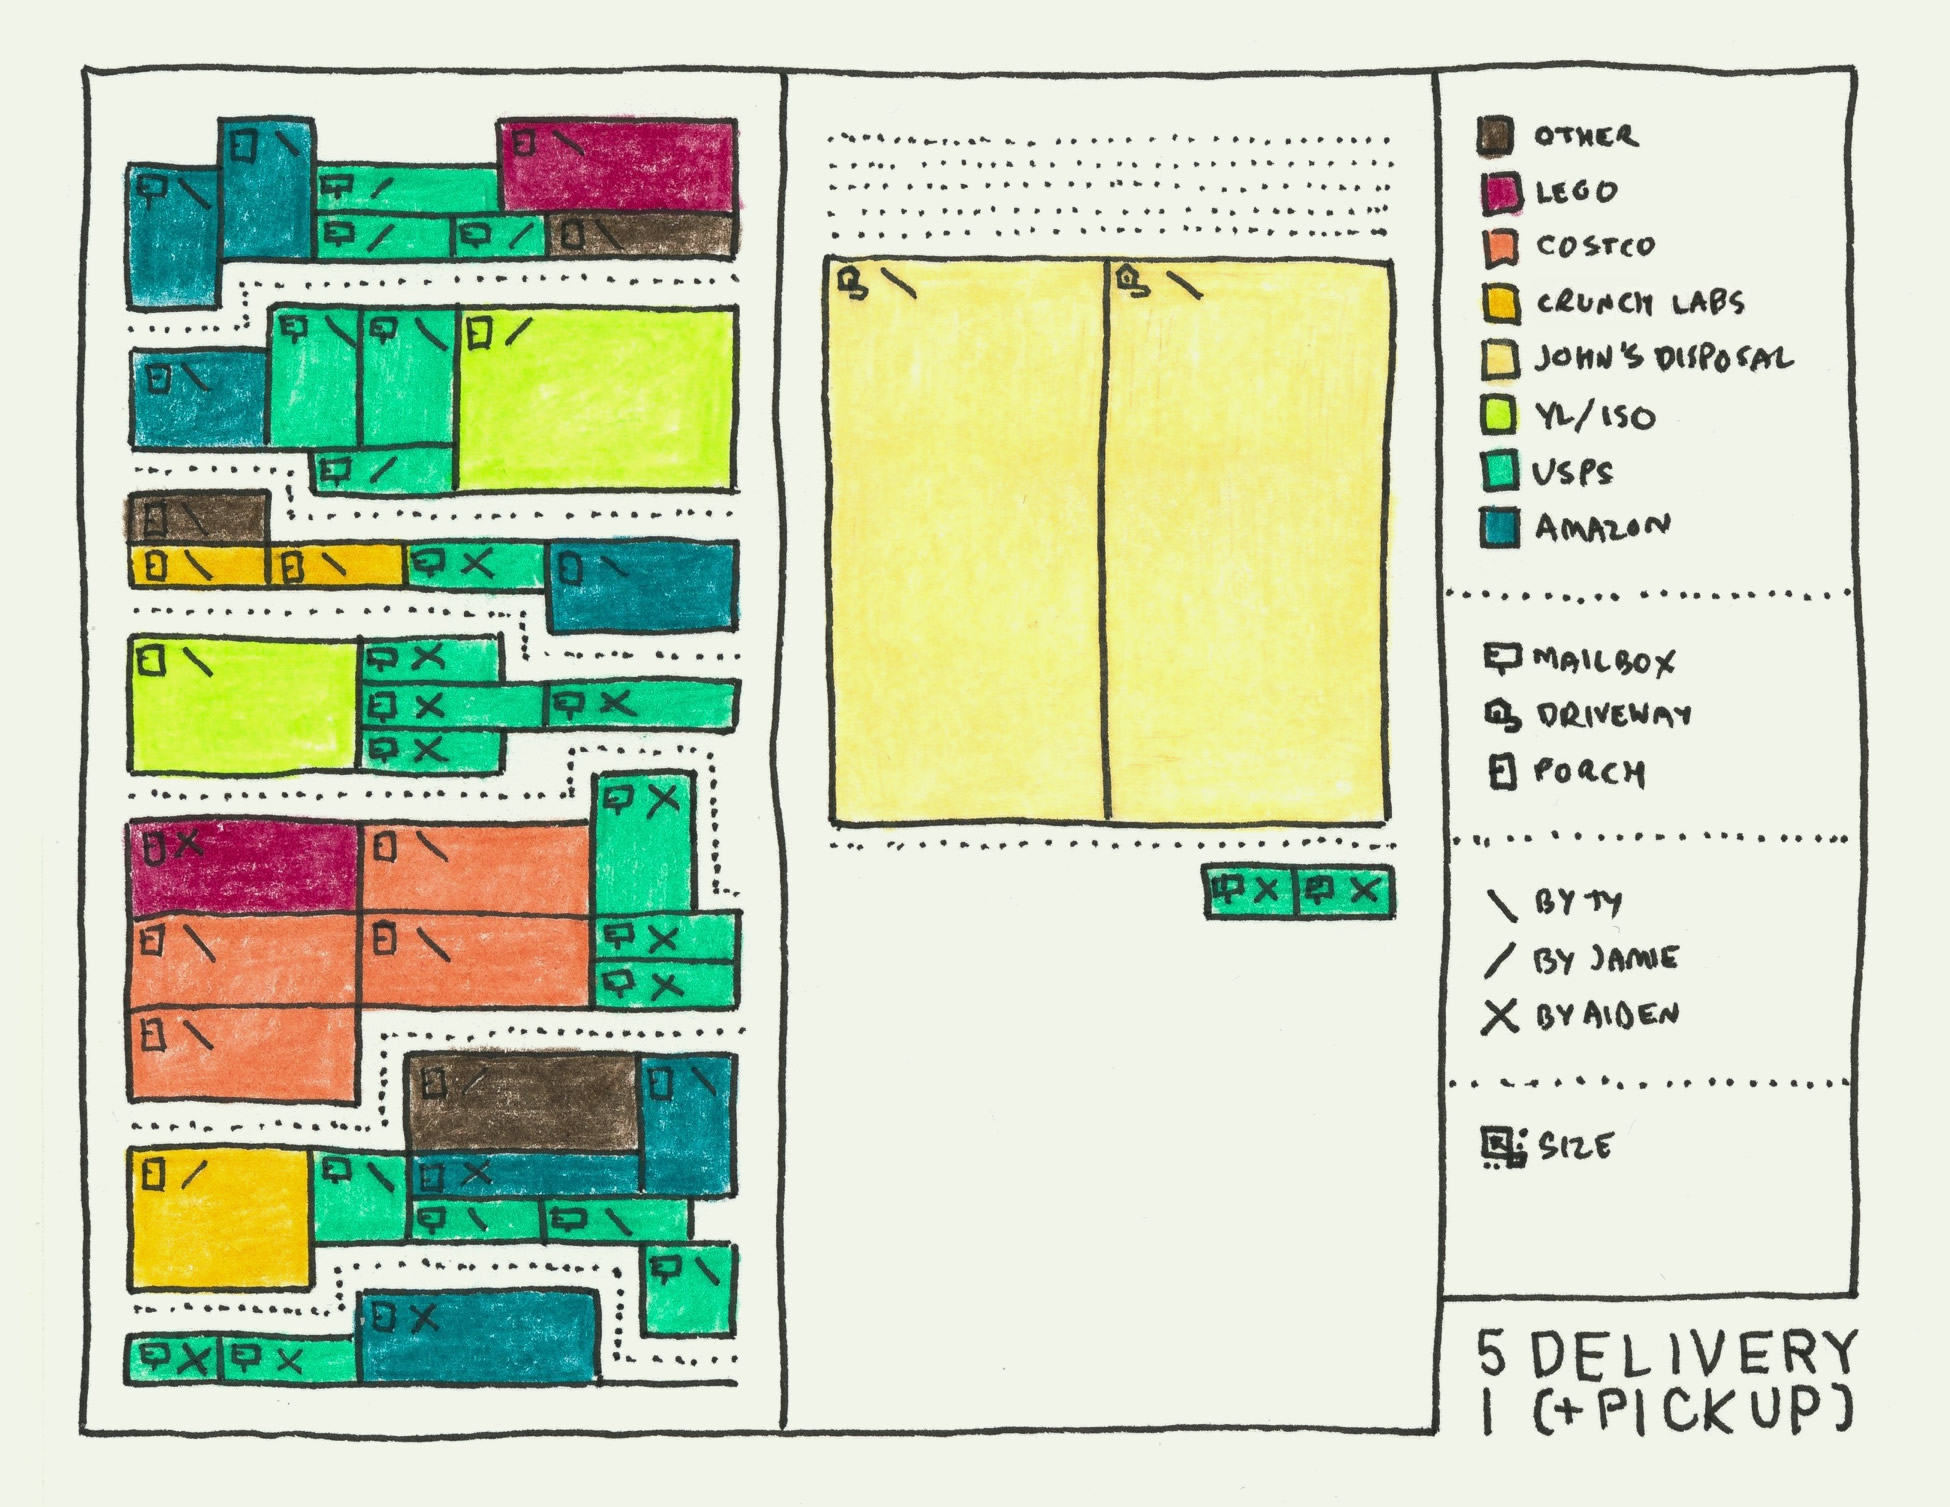 OTHER
LEGO
COSTCO
CRUNCH LABS
JOHN'S DISPOSAL
YL/ISO
USPS
AMAZON
MAILBOX
DRIVEWAY
PORCH
BY TY
BY JAMIE
BY AIDEN
SIZE
5 DELIVERY
1 (+PICKUP)